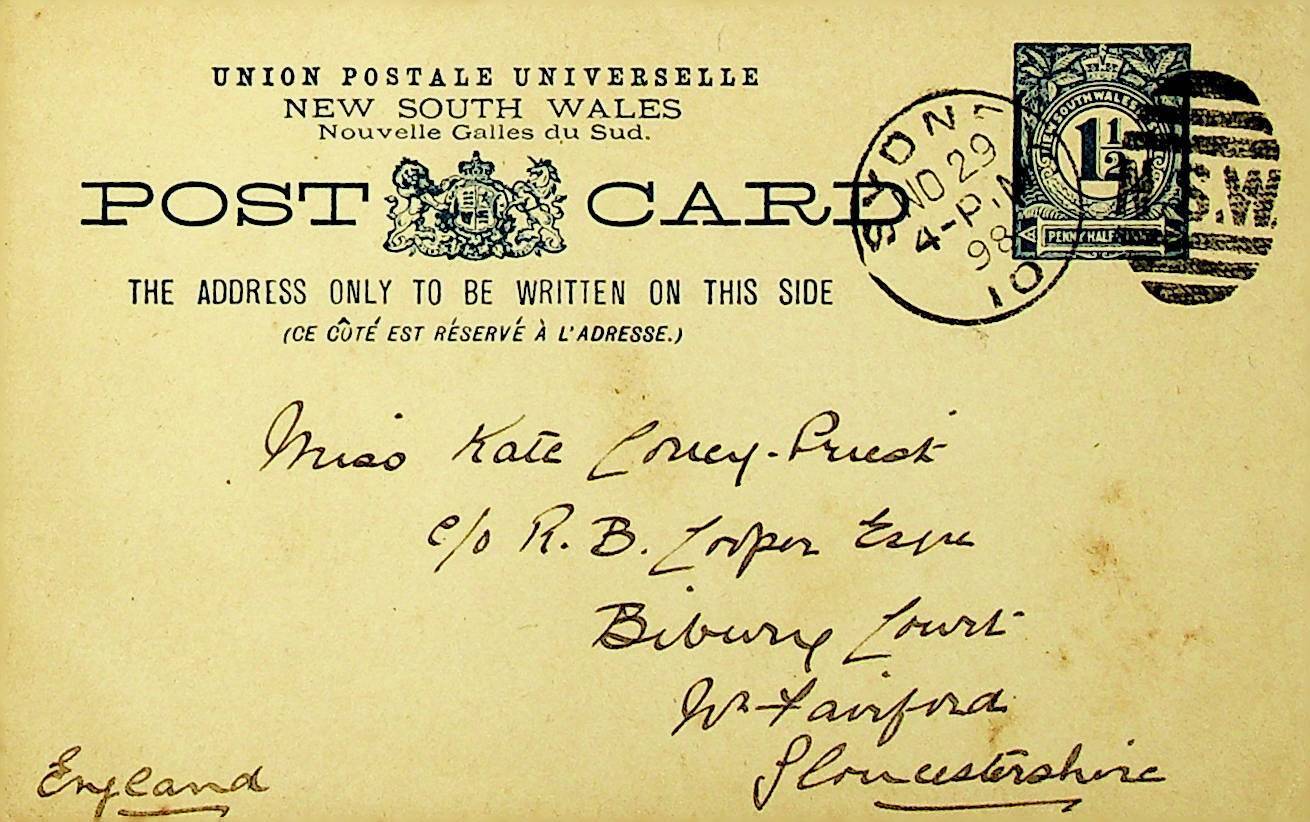 UNION POSTALE UNIVERSELLE
NEW SOUTH WALES
Nouvelle Galles du Sud.
POST CARD
THE ADDRESS ONLY TO BE WRITTEN ON THIS SIDE
(CE CÔTÉ EST RÉSERVÉ À L'ADRESSE.)
SYDNEY
NO 29
4-P.M
98
10
NEW SOUTH WALES
1½
PENNY HALF
N.S.W
Miss Kate Correy-Priest
c/o R. B. Cooper Esqre
Bibury Court
Nr Fairford
Gloucestershire
England